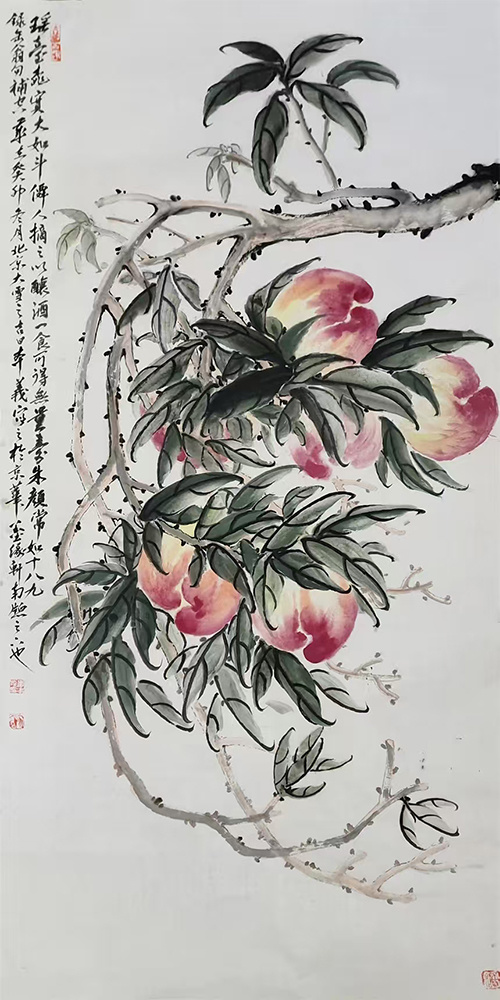 瑶台桃实大如斗仙人摘之以酿酒一食可得无量寿朱颜常如十八九
录缶翁句补空岁在癸卯冬月北京大雪之吉日本义写之于京华墨缘轩南窗之也